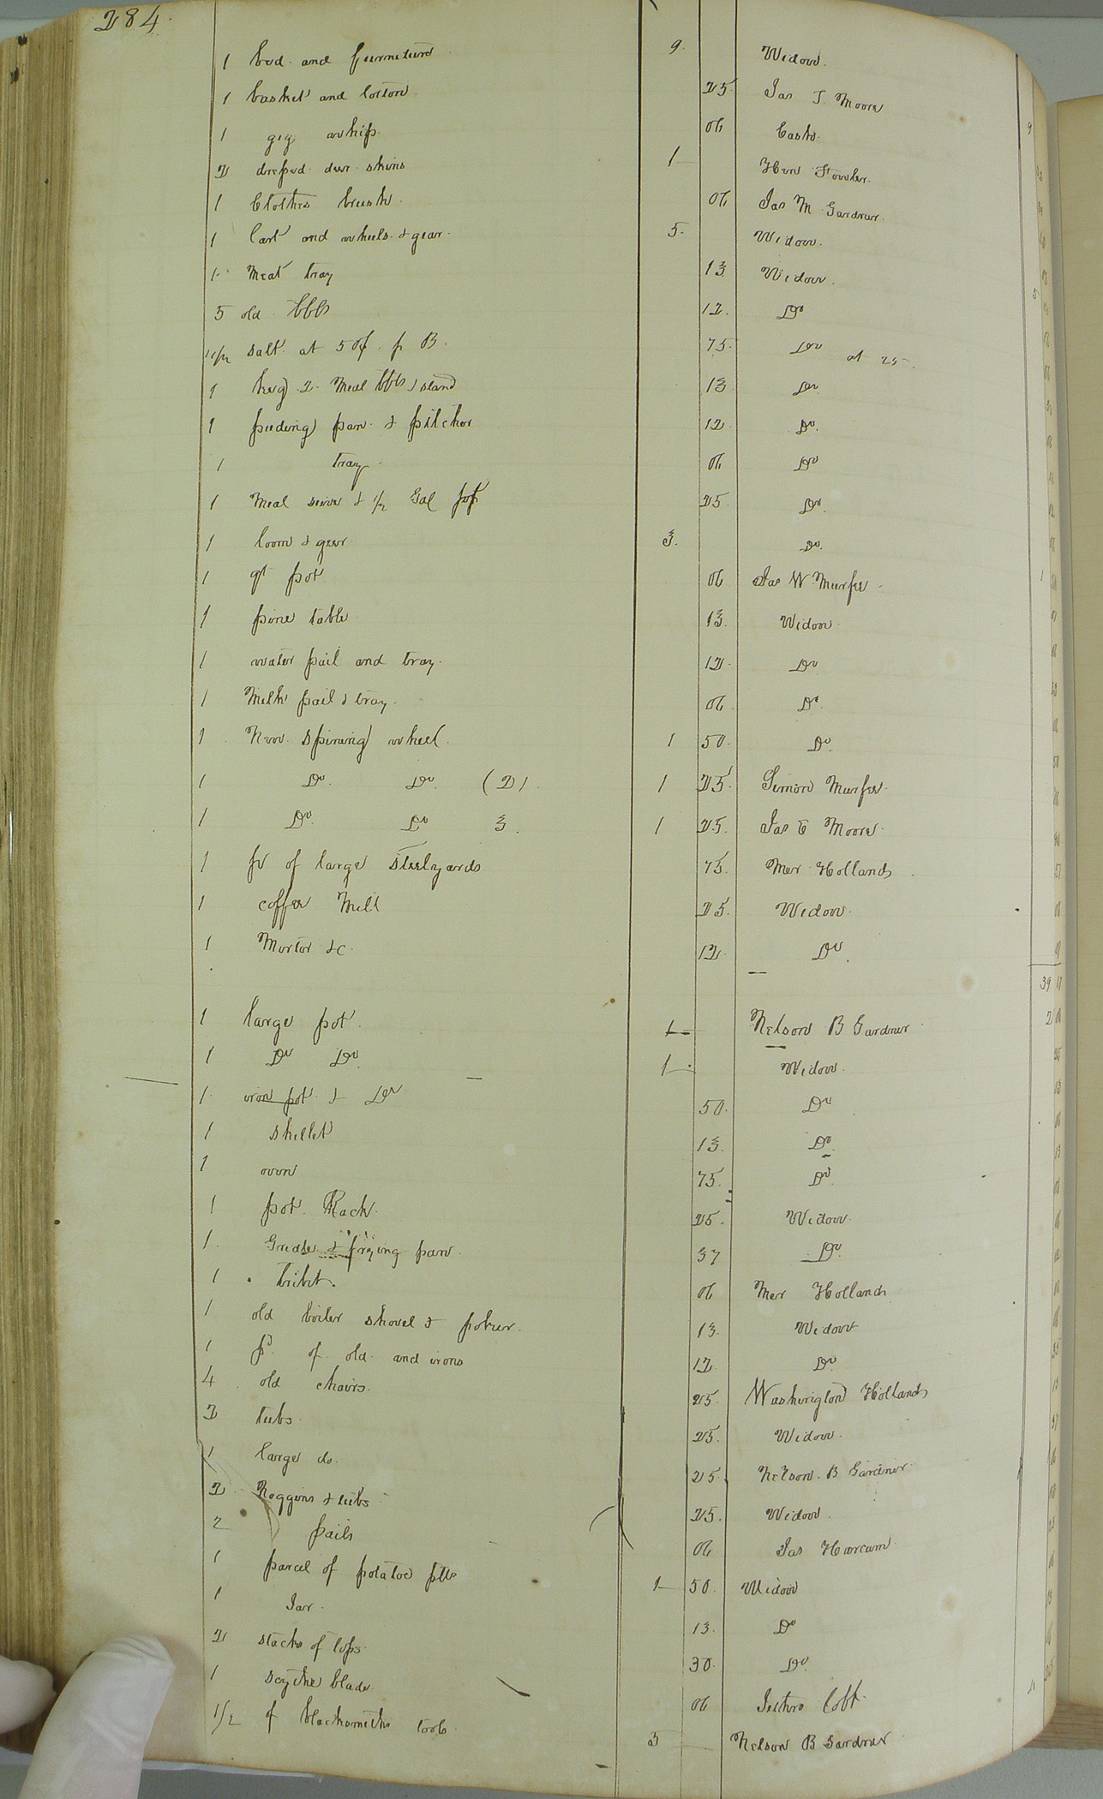 284
1 bed and furniture 9. Widow.
1 basket and Cotton 25 Jas T Moore
1 gig whip 06 Cash
2 dressed deer skins 1 Hen Fowler.
1 Clothes brush 06 Jas M Gardner
1 Cart and wheels & gear 5. Widow.
1 Meat tray 13 Widow.
5 old bbls 12. Do
salt at 50¢ pr B. 75. Do at 25
1 keg 2 Meal bbls & stand 13 Do
1 puding pan & pitcher 12 Do.
1 tray 06 Do
1 Meal seive & 1/2 Gal pot 25 Do.
1 loom & gear 3. Do.
1 qt pot 06 Jas W Murfee
1 pine table 13. Widow
1 water pail and tray 12 Do
1 Milk pail & tray 06 Do.
1 New Spining wheel 1 50. Do.
1 Do. Do. (2) 1 25. Simon Murfee
1 Do. Do 3. 1 25. Jas T Moore
1 pr of large Steelyards 75. Mer Holland
1 coffee Mill 25. Widow
1 Mortar &c 12 Do.
1 large pot 1 Nelson B Gardner
1 Do Do 1 Widow.
1 iron pot & Do 50. Do
1 skillet 13. Do.
1 oven 75. Do.
1 pot Rack 25. Widow
1 & frying pan 37 Do.
1 trivet. 06 Mer Holland
1 old boiler shovel & poker 13. Widow
1 pr of old and irons 12 Do
4 old chairs 25. Washington Holland
2 tubs 25. Widow.
1 large do. 25. Nelson B Gardner
2 Noggins & tubs 25. Widow.
2 pails 06 Jas
1 parcel of potatoe 1 50. Widow
1 Jar 13. Do
2 stacks of tops 30. Do.
1 scythe blade 06 Cobb
1/2 of blacksmiths tools 5 Nelson B Gardner